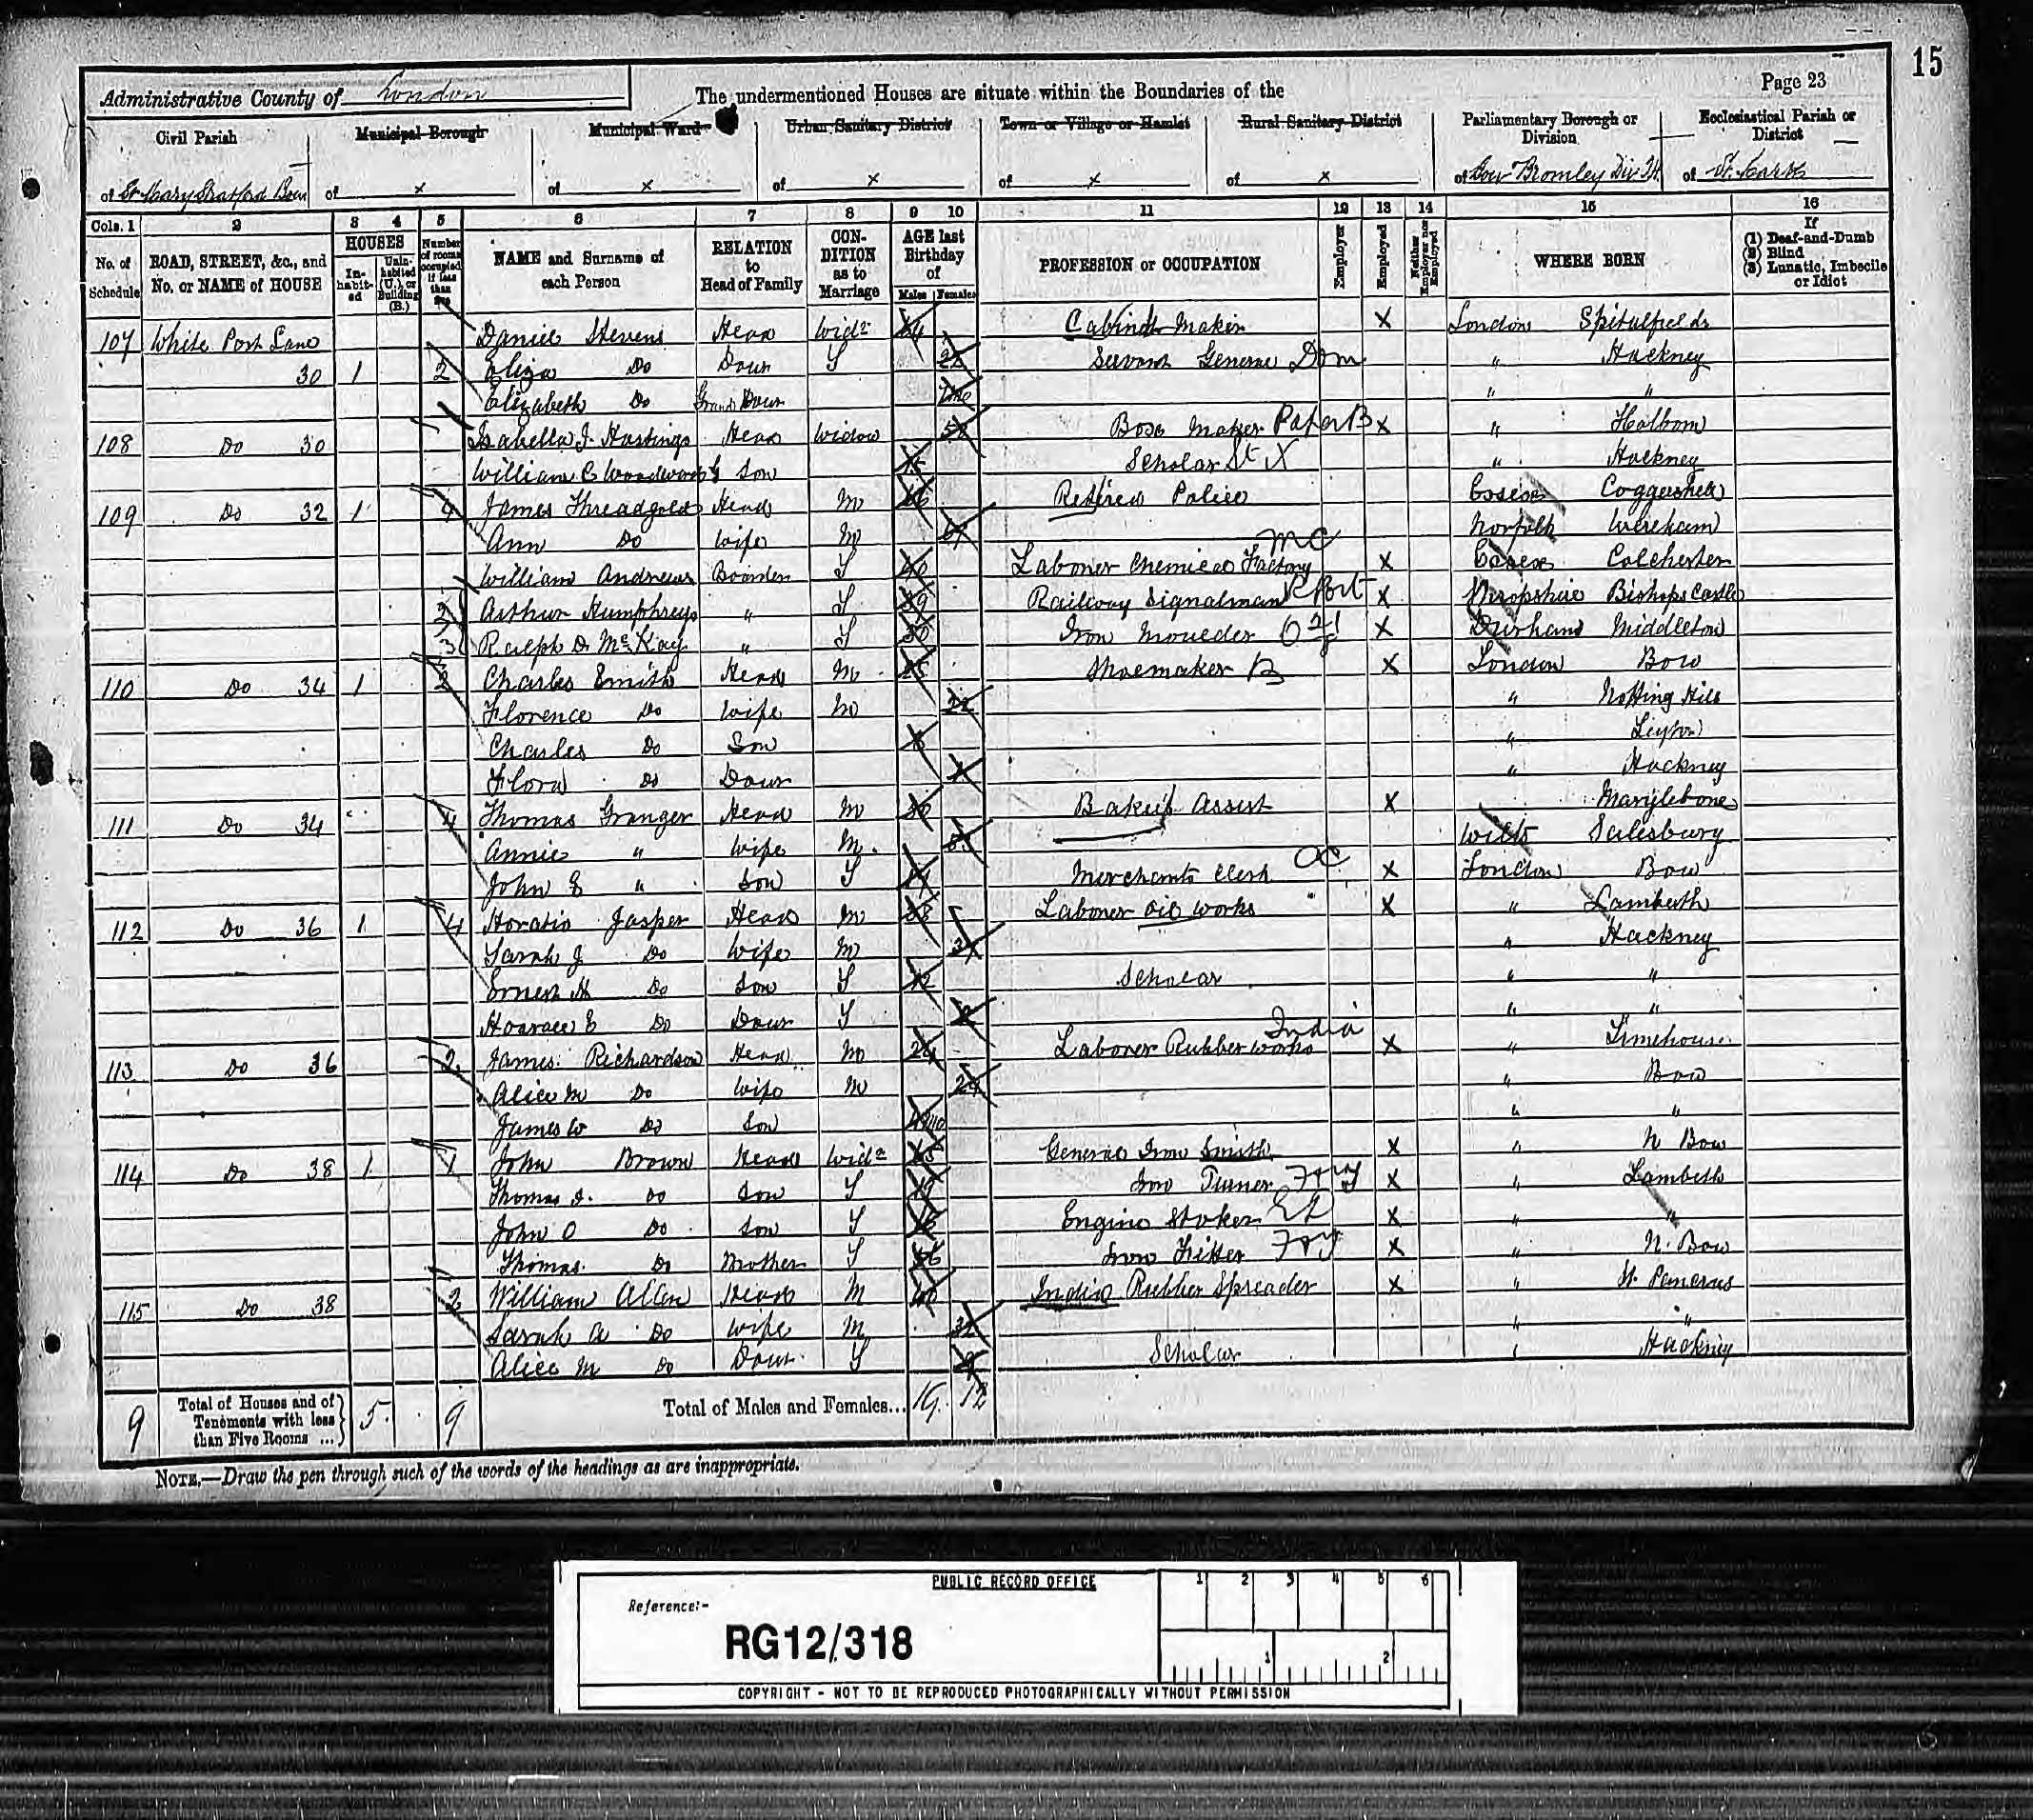 15
Page 23
Administrative County of London
The undermentioned Houses are situate within the Boundaries of the
Civil Parish
Municipal Borough
Municipal Ward
Urban Sanitary District
Town or Village or Hamlet
Rural Sanitary District
Parliamentary Borough or Division
Ecclesiastical Parish or District
of St Mary Stratford Bow of x of x of x of x of x of Bow Bromley Div of St
Cols. 1 2 3 4 5 6 7 8 9 10 11 12 13 14 15 16
No. of Schedule
ROAD, STREET, &c., and No. or NAME of HOUSE
HOUSES
In-habit-ed
Unin-habited (U.) or Building (B.)
Number of rooms occupied if less than five
NAME and Surname of each Person
RELATION to Head of Family
CON-DITION as to Marriage
AGE last Birthday of
Males Females
PROFESSION or OCCUPATION
Employer
Employed
Neither Employer nor Employed
WHERE BORN
If
(1) Deaf-and-Dumb
(2) Blind
(3) Lunatic, Imbecile or Idiot
107 White Post Lane Daniel Stevens Head Widr Cabinet Maker X London Spitalfields
30 1 2 Eliza Do Daur S Servant General Dom " Hackney
Elizabeth Do Grand Daur " "
108 Do 30 Isabella J. Hastings Head Widow Box Maker Paper B X " Holborn
William C Woodward Son Scholar St X " Hackney
109 Do 32 1 James Threadgold Head M Retired Police Essex Coggeshall
Ann Do Wife M Norfolk Wereham
William Andrews Boarder S 40 Laborer Chemical Factory MC X Essex Colchester
Arthur Humphreys " S Railway Signalman X Shropshire Bishops Castle
Ralph D. McKay " S Iron Moulder X Durham Middleton
110 Do 34 1 Charles Smith Head M 25 Shoemaker B X London Bow
Florence Do Wife M 22 " Notting Hill
Charles Do Son " Leyton
Flora Do Daur " Hackney
111 Do 34 4 Thomas Granger Head M Bakers Assist X Marylebone
Annie " Wife M. Wilts Salesbury
John E " Son S Merchants Clerk OC X London Bow
112 Do 36 1 4 Horatio Jasper Head M 38 Laborer Oil Works X " Lambeth
Sarah J Do Wife M " Hackney
Ernest H Do Son S 12 Scholar " "
Horrace E Do Daur S " "
113 Do 36 2 James Richardson Head M 24 Laborer India Rubber Works X " Limehouse
Alice M Do Wife M 24 " Bow
James W Do Son " "
114 Do 38 1 John Brown Head Widr General Iron Smith X " N Bow
Thomas J. Do Son S 19 Iron Turner X " Lambeth
John O Do Son S Engine Stoker X " "
Thomas Do Brother S Iron Fitter X " N. Bow
115 Do 38 2 William Allen Head M 40 India Rubber Spreader X " St. Pancras
Sarah A Do Wife M " "
Alice M Do Daur S Scholar " Hackney
9 Total of Houses and of Tenements with less than Five Rooms ... 5 9 Total of Males and Females... 19 12
NOTE.—Draw the pen through such of the words of the headings as are inappropriate.
PUBLIC RECORD OFFICE
1 2 3 4 5 6
Reference:-
RG12/318
1 2
COPYRIGHT - NOT TO BE REPRODUCED PHOTOGRAPHICALLY WITHOUT PERMISSION